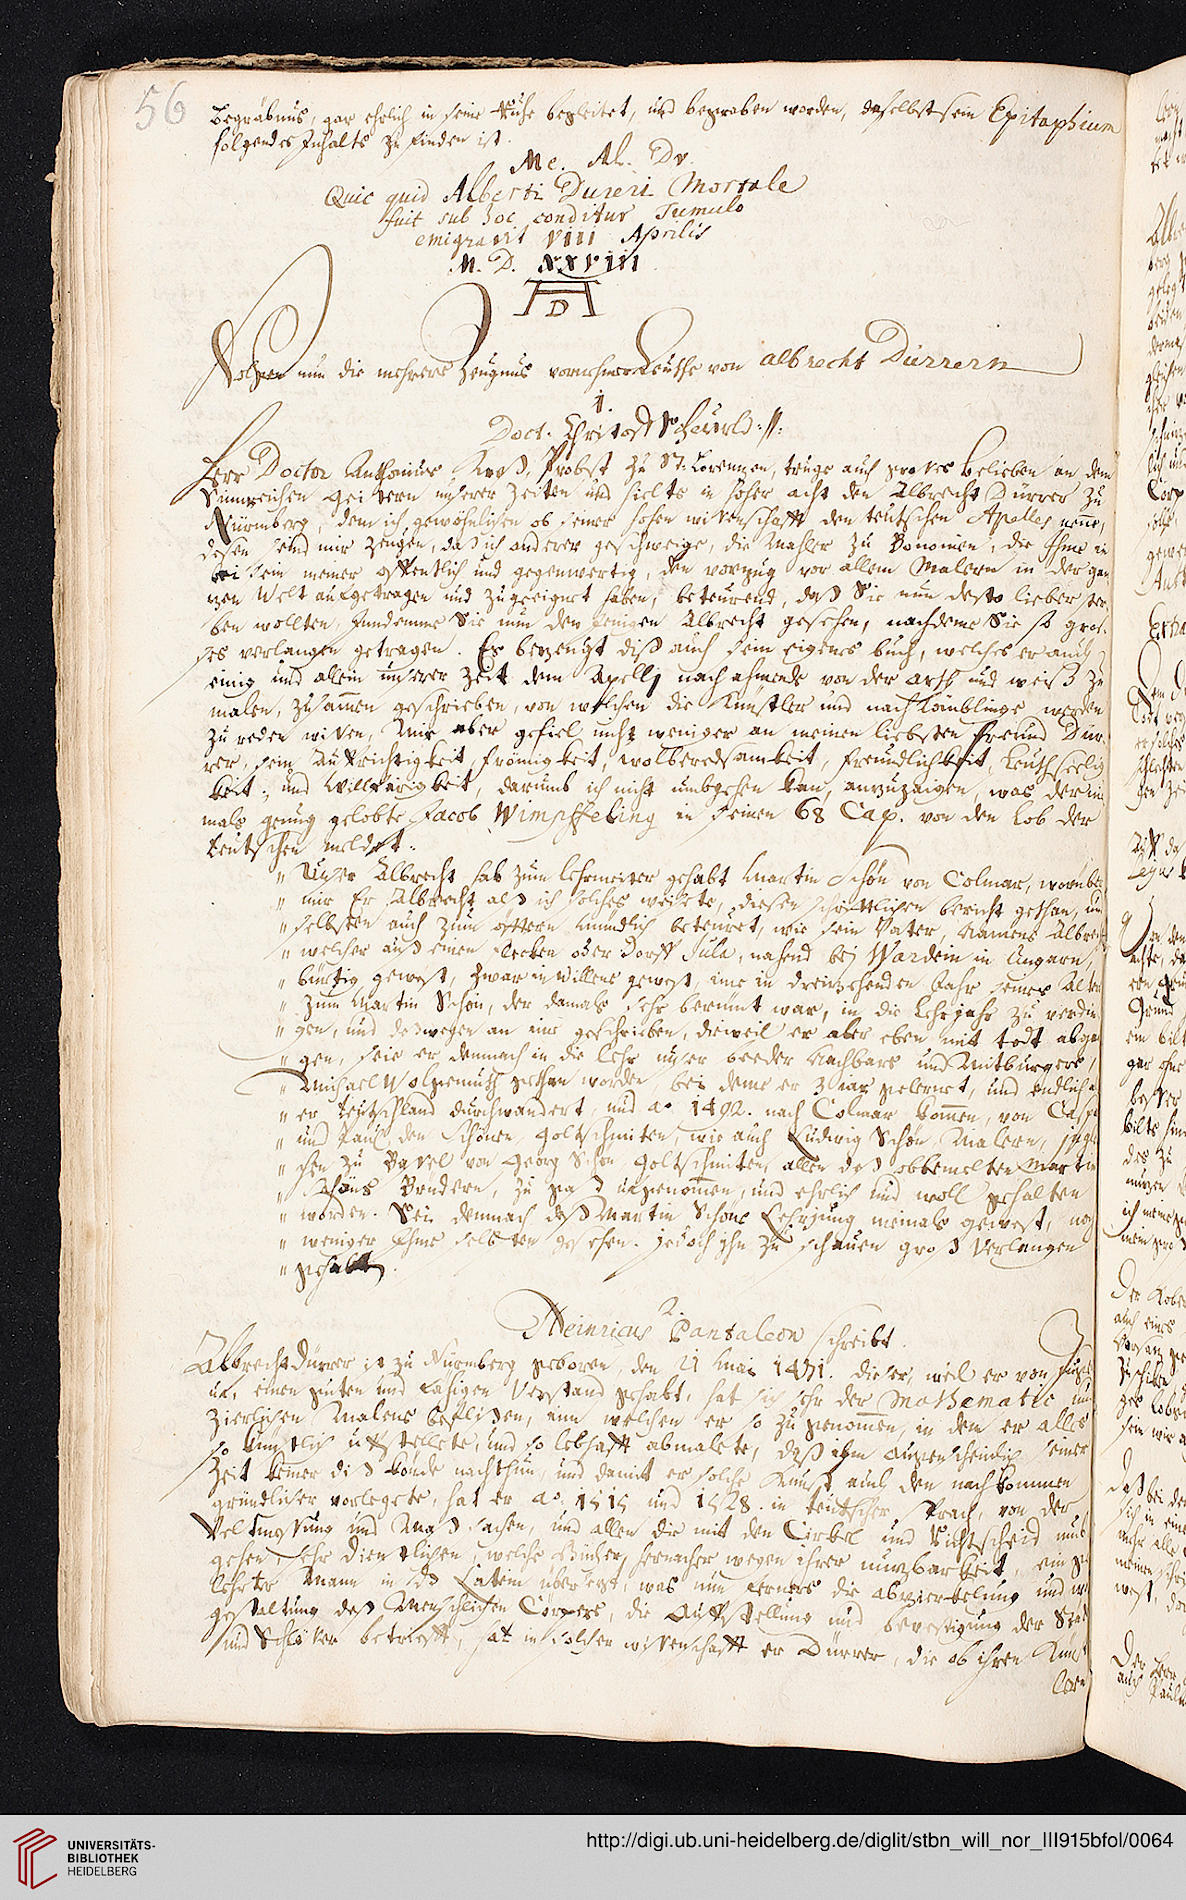 56
Begräbnus, gar ehrlich in seine Ruhe begleitet, und begraben worden, daselbst sein Epitaphium
folgendes Inhalts zu finden ist.
Me. Al. Dv.
Quic quid Alberti Dureri Mortale
fuit sub hoc conditur Tumulo
emigravit VIII Aprilis
M. D. XXVIII
AD
Folgen nun die mehrere Zeugnus vornehmer Leuthe von Albrecht Dürrern
1.
Doct. Christof Scheürld:
Herr Doctor Anthonius Kreß, Probst zu St: Lorenzen, truge auch großes Belieben an dem
Sinnreichen Geistern unserer Zeiten und hielts in hoher acht den Albrecht Dürrer zu
Nürmberg, dem ich gewöhnlichen ob seiner hohen wissenschafft den teutschen Apelles nenne,
dessen seind mir zeugen, daß ich anderer geschweige, die Mahler zu Bononien, die Ihme in
bei sein meiner offentlich und gegenwertig, den vorzug vor allem Malern in der gan
zen Welt aufgetragen und zugeeignet haben, beteurend, daß Sie nun desto lieber ster
ben wollten, Jundemme Sie nun den jenigen Albrecht gesehen, nachdeme Sie so gros
ses verlangen getragen. Es bezeugt diß auch sein eigenes buch, welches er auch
einig und allein unserer Zeit dem Apelli nachahmende von der arth und weiß zu
malen, zusamen geschrieben, von welchen die Künstler und nachkömblinge werden
zu reden wissen, Mir aber gefiel nicht weniger an meinen liebsten freund Dür
rer, sein Aufrichtigkeit, frömigkeit, wolberedsamkeit, freundlichkeit, Leuthseelig
keit, und Willfärigkeit, darumb ich nicht umbgehen kan, anzuzaigen, was der nie
mals genug gelobte Jacob Wimpffeling in seinen 68 Cap. von den Lob der
teutschen meldet:
" Unser Albrecht hab zum Lehrmeister gehabt Martin Schön von Colmar, worüber
" mir Er Albrecht als ich solches wissete, diesen schrifftlichen bericht gethan, und
" selbsten auch zum öfftern mündlich beteuret, wie sein Vater, Namens Albrecht
" welcher auß einen flecken oder Dorff Jula, nahend bej Wardein in Ungarn,
" bürtig gewest, zwar in Willens gewest, ime in dreizehenden Jahr seines Alters
" zum Martin Schön, der damals sehr berümt war, in die Lehrjahr zu verdin
" gen, und deßwegen an ime geschrieben, dieweil er aber eben mit todt abgan
" gen, seie er demnach in die Lehr unser beeder Nachbars und Mitburgers,
" Michael Wolgemuth gethan worden, bei deme er 3 iar gelernet, und endlich als
" er teutschland durchwandert, und ao. 1492. nach Colmar komen, von Caspar
" und Paul den Schönen, Goltschmiten, wie auch Ludwig Schön, Malern, ingl
" chen zu Basel von Georg Schön, Goltschmiten, allen deß obbemelten Martin
" Schöns Brudern, zu Haß ufgenomen, und ehrlich und woll gehalten
" worden. Sei demnach deß Martin Schöns Lehrjung niemals gewest, noch
" weniger Ihme selbsten gesehen. jedoch ihn zu schauen groß Verlangen
" gehabt.
2.
Heinricus Pantaleon schreibt.
Albrecht Dürrer ist zu Nürmberg geboren den 21 Mai 1471. dieser, weil er von Jugend
uf, einen guten und fähigen Verstand gehabt, hat sich sehr der Mathematic und
zierlichen Malens beflissen, inn welchen er so zugenomen, in dem er alles
so künstlich uffstellete, und so lebhafft abmalete, daß ihm augenscheinlich seiner
Zeit keiner diß könde nachthun, und damit er solche Kunst auch den nachkommen
gründlicher vorlegete, hat er ao. 1525 und 1528. in teutscher Sprach, von der
Veltmessung und Maß sachen, und allen die mit den Cirkel und Richtscheid umb
gehen, sehr dienstlichen, welche Bücher, hernacher wegen ihrer nuzbarkeit, ein ge
lehrter Mann in das Latein übersezt, was nun ferners die abzierkelung und um
gestaltung deß Menschlichen Cörpers, die Auffstellung und bevestigung der Stät
und Schlösser betriefft, hat in solcher wissenschafft er Dürrer, die ob ihren Künst
lern
UNIVERSITÄTS-
BIBLIOTHEK
HEIDELBERG
http://digi.ub.uni-heidelberg.de/diglit/stbn_will_nor_III915bfol/0064